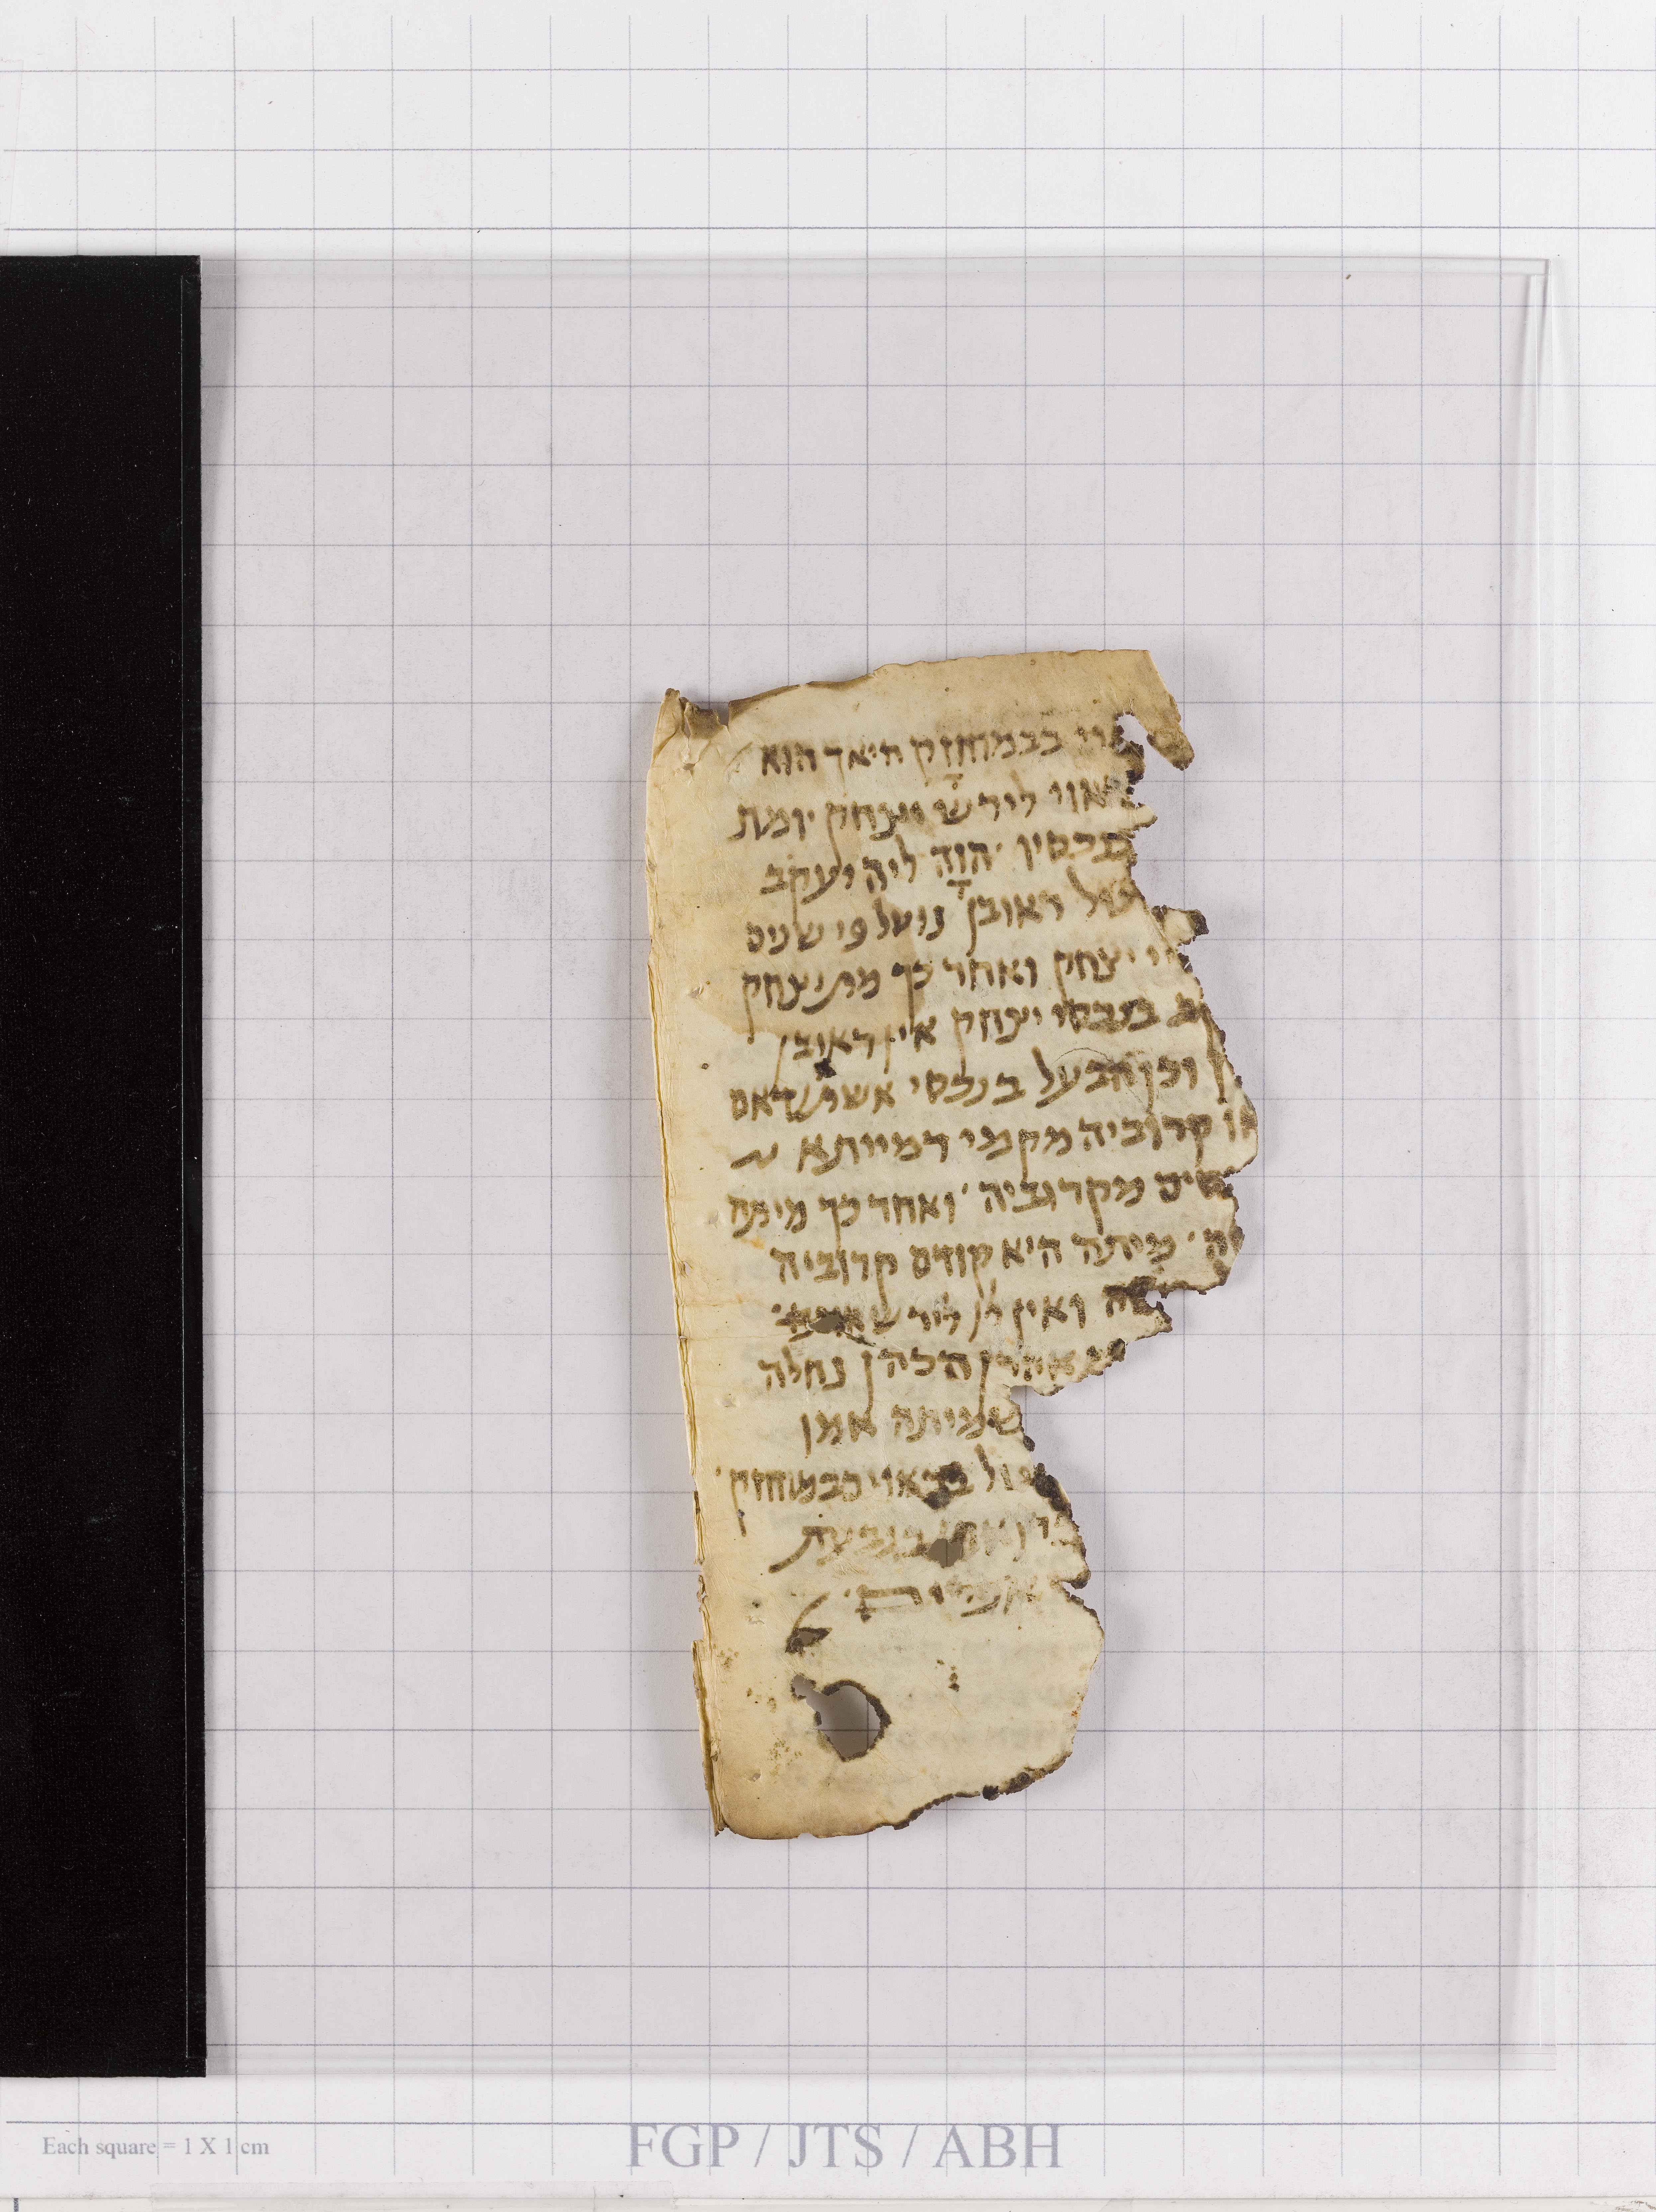 כבמוחזק היאך הוא
ראוי לירש יצחק ומת
בנכסין הוה ליה יעקב
של ראובן נוטל פי שנים
יצחק ואחר כך מת יצחק
בנכסי יצחק אין ראובן
וכן הבעל בנכסי אשתו שאם
או קרוביה מקמי דמייתא
מקרוביה ואחר כך מיתה
מיתה היא קודם קרוביה
ואין לו לירש
אהרן הכהן נחלה
שמיתה אמן
בראוי כבמוחזק
בגבעת
אפרים
Each square = 1 X 1 cm
FGP / JTS / ABH